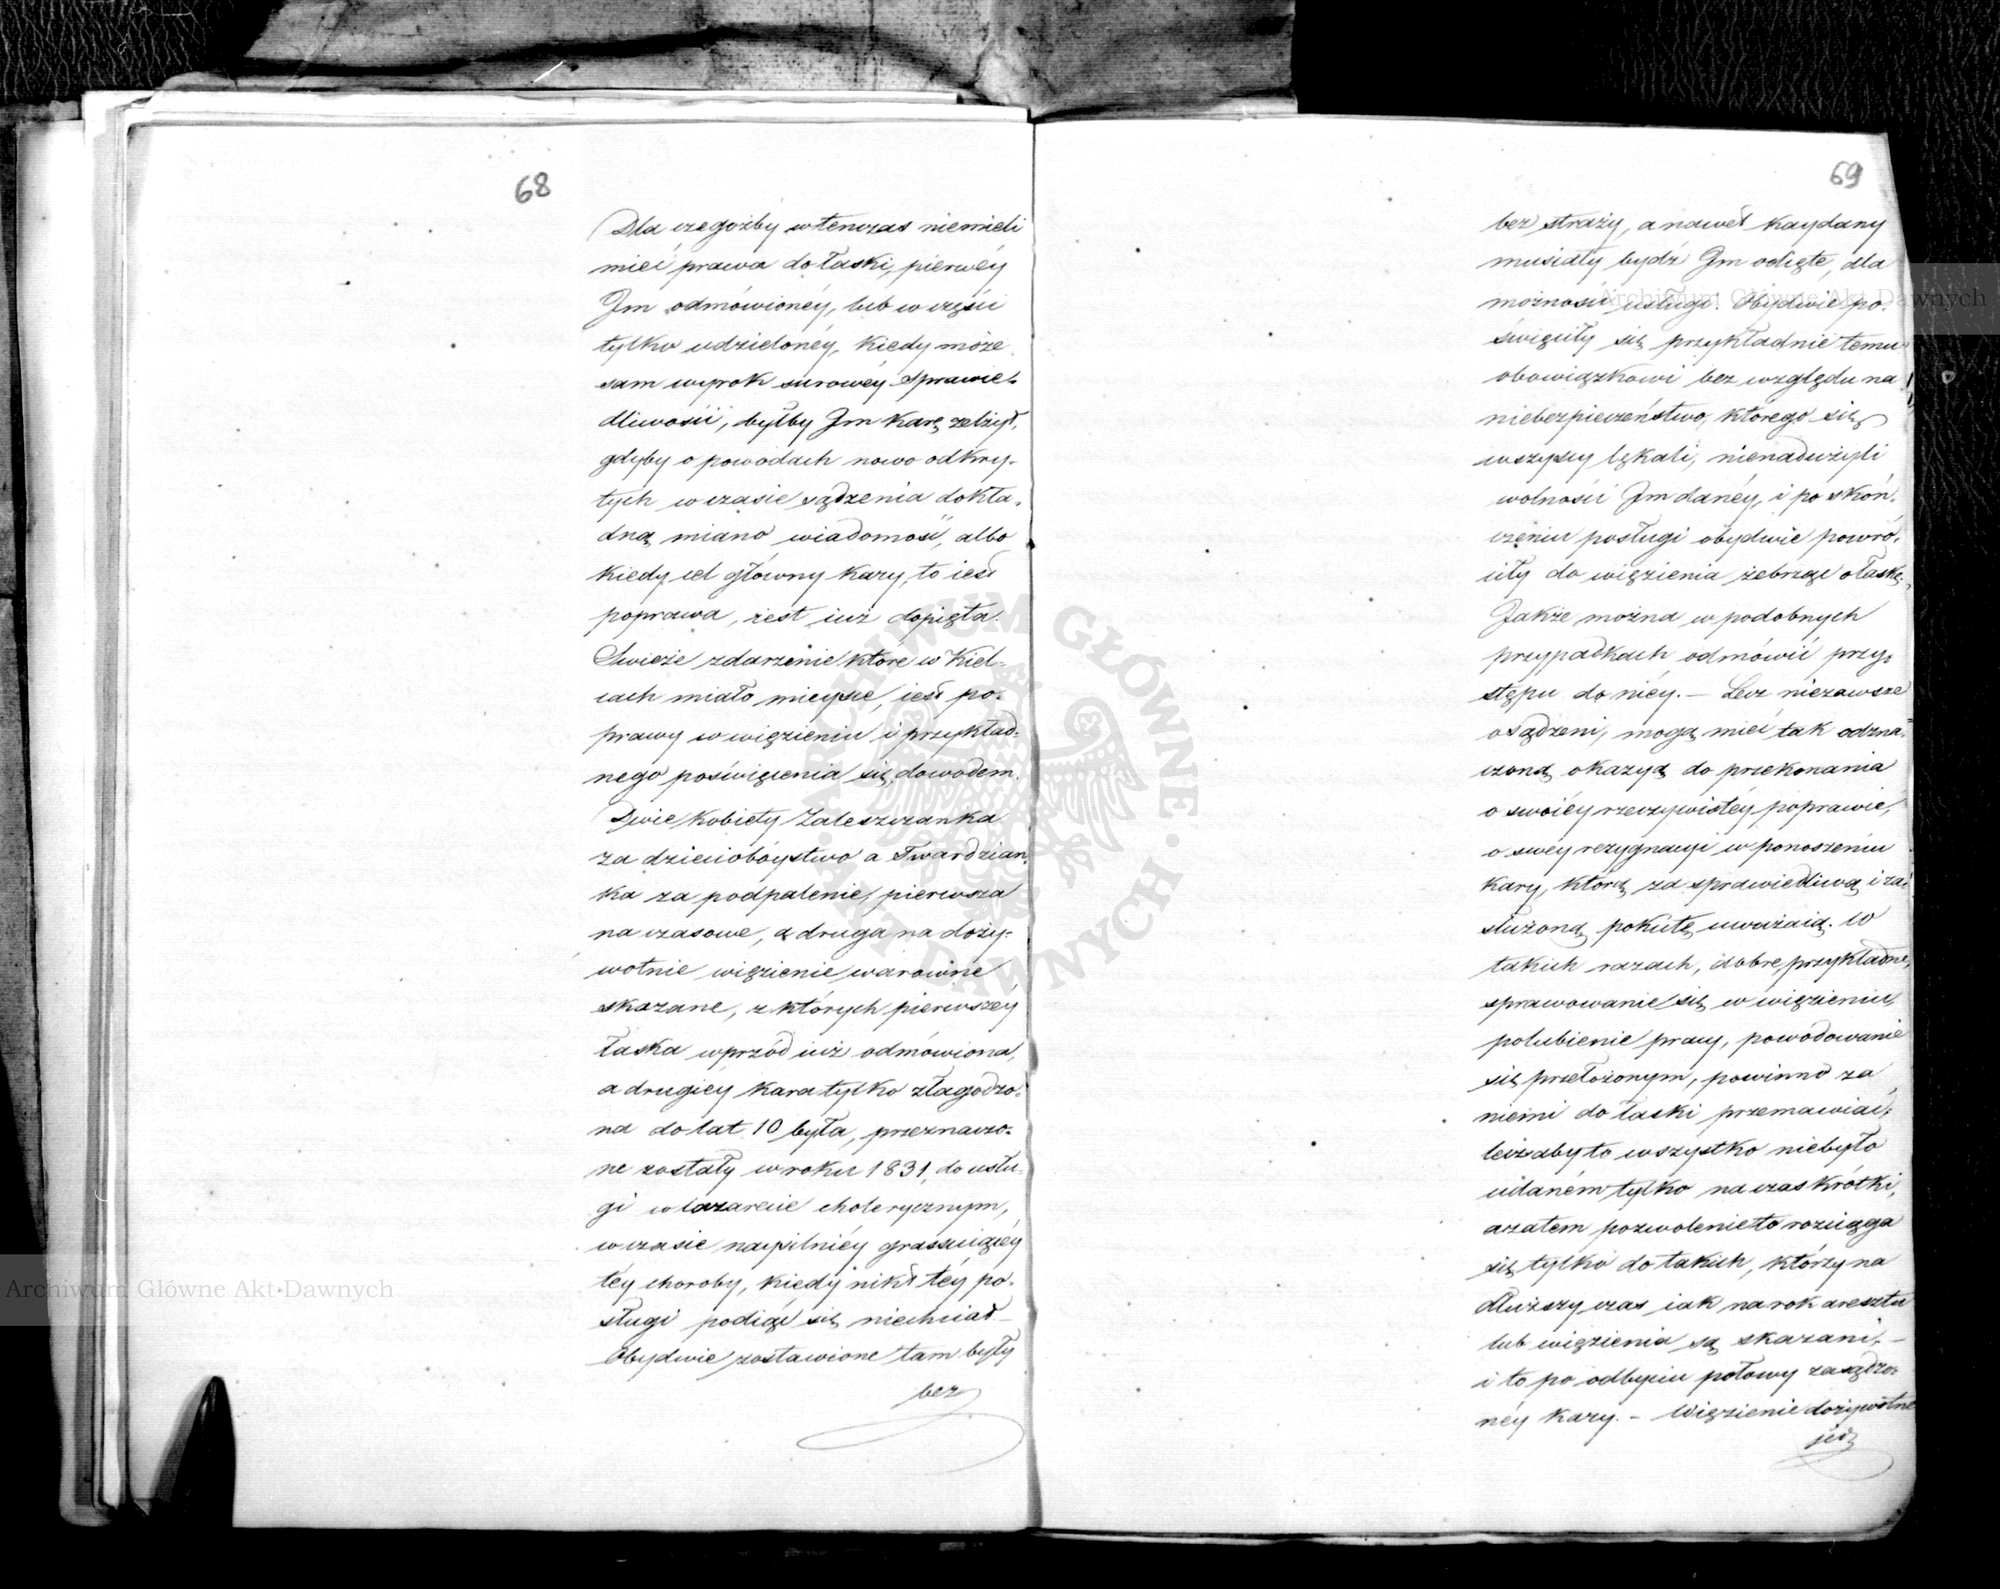 68
Dla czegożby wtenczas niemieli
mieć prawa do łaski, pierwéy
Jm odmówionéy, lub w części
tylko udzielonéy, kiedy może
sam wyrok surowéy sprawie-
dliwości, byłby Jm karę zelżył,
gdyby o powodach nowo odkry-
tych w czasie sądzenia dokła-
dną miano wiadomość, albo
kiedy cel główny kary, to iest
poprawa, iest iuż dopięta.
Swieże zdarzenie które w Kiel-
cach miało mieysce, iest po-
prawy w więzieniu i przykład-
nego poświęcenia się dowodem.
Dwie kobiety Zaleszczanka
za dzieciobóystwo a Twardzian-
ka za podpalenie, pierwsza
na czasowe, a druga na doży-
wotnie więzienie warowne
skazane, z których pierwszéy
łaska wprzód iuż odmówiona,
a drugiey kara tylko złagodzo-
na do lat 10 była, przeznaczo-
ne zostały w roku 1831, do usłu-
gi w lazarecie cholerycznym,
w czasie naysilniéy grassuiącéy
téy choroby, kiedy nikt téy po-
sługi podiąć się niechciał. –
Obydwie zostawione tam były
bez
69
bez straży, a nawet kaydany
musiały bydź Jm odięte, dla
możności usługi. Obydwie po-
święciły się przykładnie temu
obowiązkowi bez względu na
niebezpieczeństwo, którego się
wszyscy lękali, nienadużyli
wolności Jm danéy, i po skoń-
czeniu posługi obydwie powró-
ciły do więzienia żebrząc o łaskę.
Jakże można w podobnych
przypadkach odmówić przy-
stępu do niéy. – Lecz niezawsze
osądzeni, mogą mieć tak odzna-
czoną okazyą do przekonania
o swoiéy rzeczywistéy poprawie,
o swéy rezygnacyi w ponoszeniu
kary, którą za sprawiedliwą i za-
służoną pokutę uważaią. W
takich razach, dobre przykładne,
sprawowanie się w więzieniu,
polubienie pracy, powodowanie
się przełożonym, powinno za
niemi do łaski przemawiać,
lecz aby to wszystko niebyło
udaném tylko na czas krótki,
a zatem pozwolenie to rozciąga
się tylko do takich, którzy na
dłuższy czas iak na rok aresztu
lub więzienia są skazani, –
i to po odbyciu połowy zasądzo-
néy kary. – Więzienie dożywotne
jest
Archiwum Główne Akt Dawnych
Archiwum Główne Akt Dawnych
ARCHIWUM GŁÓWNE AKT DAWNYCH